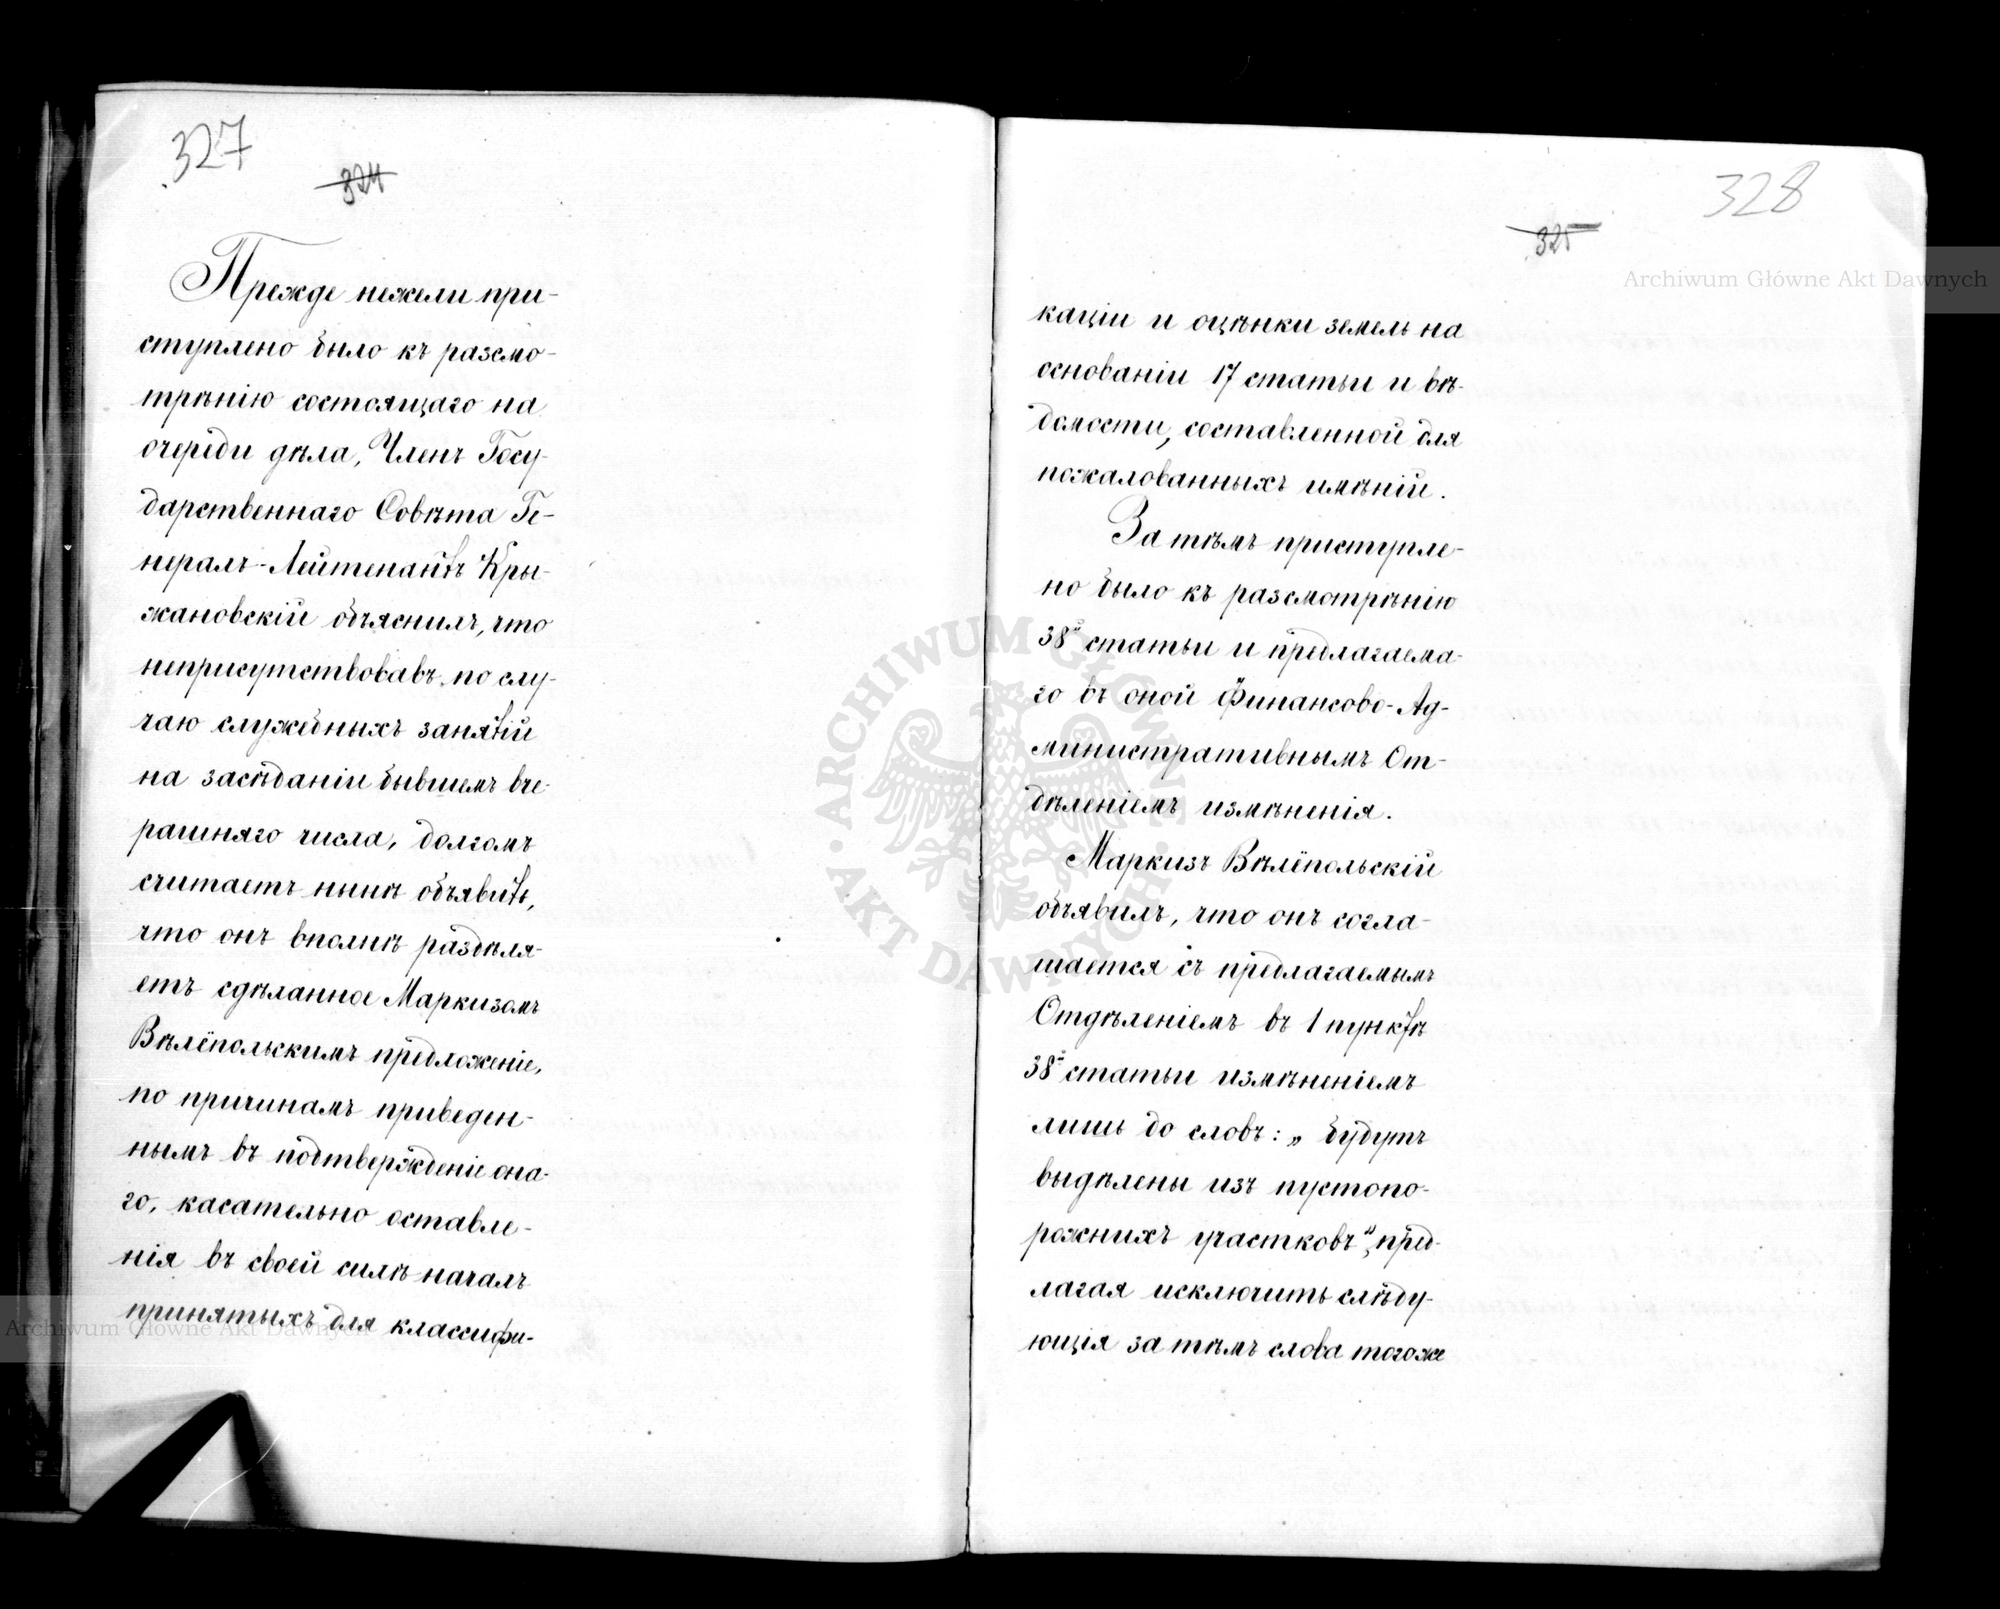 327
324
Прежде нежели при-
ступлено было къ разсмо-
трѣнію состоящаго на
очереди дѣла, Членъ Госу-
дарственнаго Совѣта Ге-
нералъ-Лейтенантъ Кры-
жановскій объяснилъ, что
неприсутствовавъ по слу-
чаю служебныхъ занятій
на засѣданіи бывшемъ вче-
рашняго числа, долгомъ
считаетъ нынѣ объявить,
что онъ вполнѣ раздѣля-
етъ сдѣланное Маркизомъ
Вѣлёпольскимъ предложеніе,
по причинамъ приведен-
нымъ въ подтвержденіе она-
го, касательно оставле-
нія въ своей силѣ началъ
принятыхъ для классифи-
328
325
каціи и оцѣнки земель на
основаніи 17 статьи и вѣ-
домости, составленной для
пожалованныхъ имѣній.
За тѣмъ приступле-
но было къ разсмотрѣнію
38й статьи и предлагаема-
го въ оной Финансово-Ад-
министративнымъ От-
дѣленіемъ измѣненія.
Маркизъ Вѣлёпольскій
объявилъ, что онъ согла-
шается съ предлагаемымъ
Отдѣленіемъ въ 1 пунктѣ
38й статьи измѣненіемъ
лишь до словъ: „будутъ
выдѣлены изъ пустопо-
рожнихъ участковъ“, пред-
лагая исключить слѣду-
ющія за тѣмъ слова тогоже
Archiwum Główne Akt Dawnych
Archiwum Główne Akt Dawnych
ARCHIWUM GŁÓWNE AKT DAWNYCH